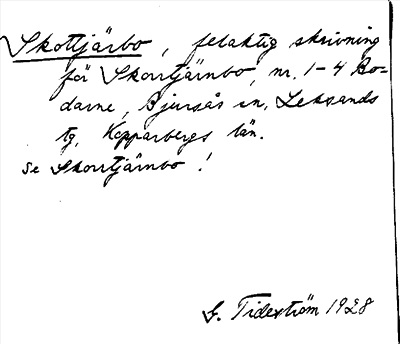 Skottjärbo, felaktig skrivning
för Skorrtjärnbo, nr. 1-4 Bo-
darne, Bjursås sn, Leksands
tg, Kopparbergs län.
Se Skorrtjärnbo!
G. Tideström 1928